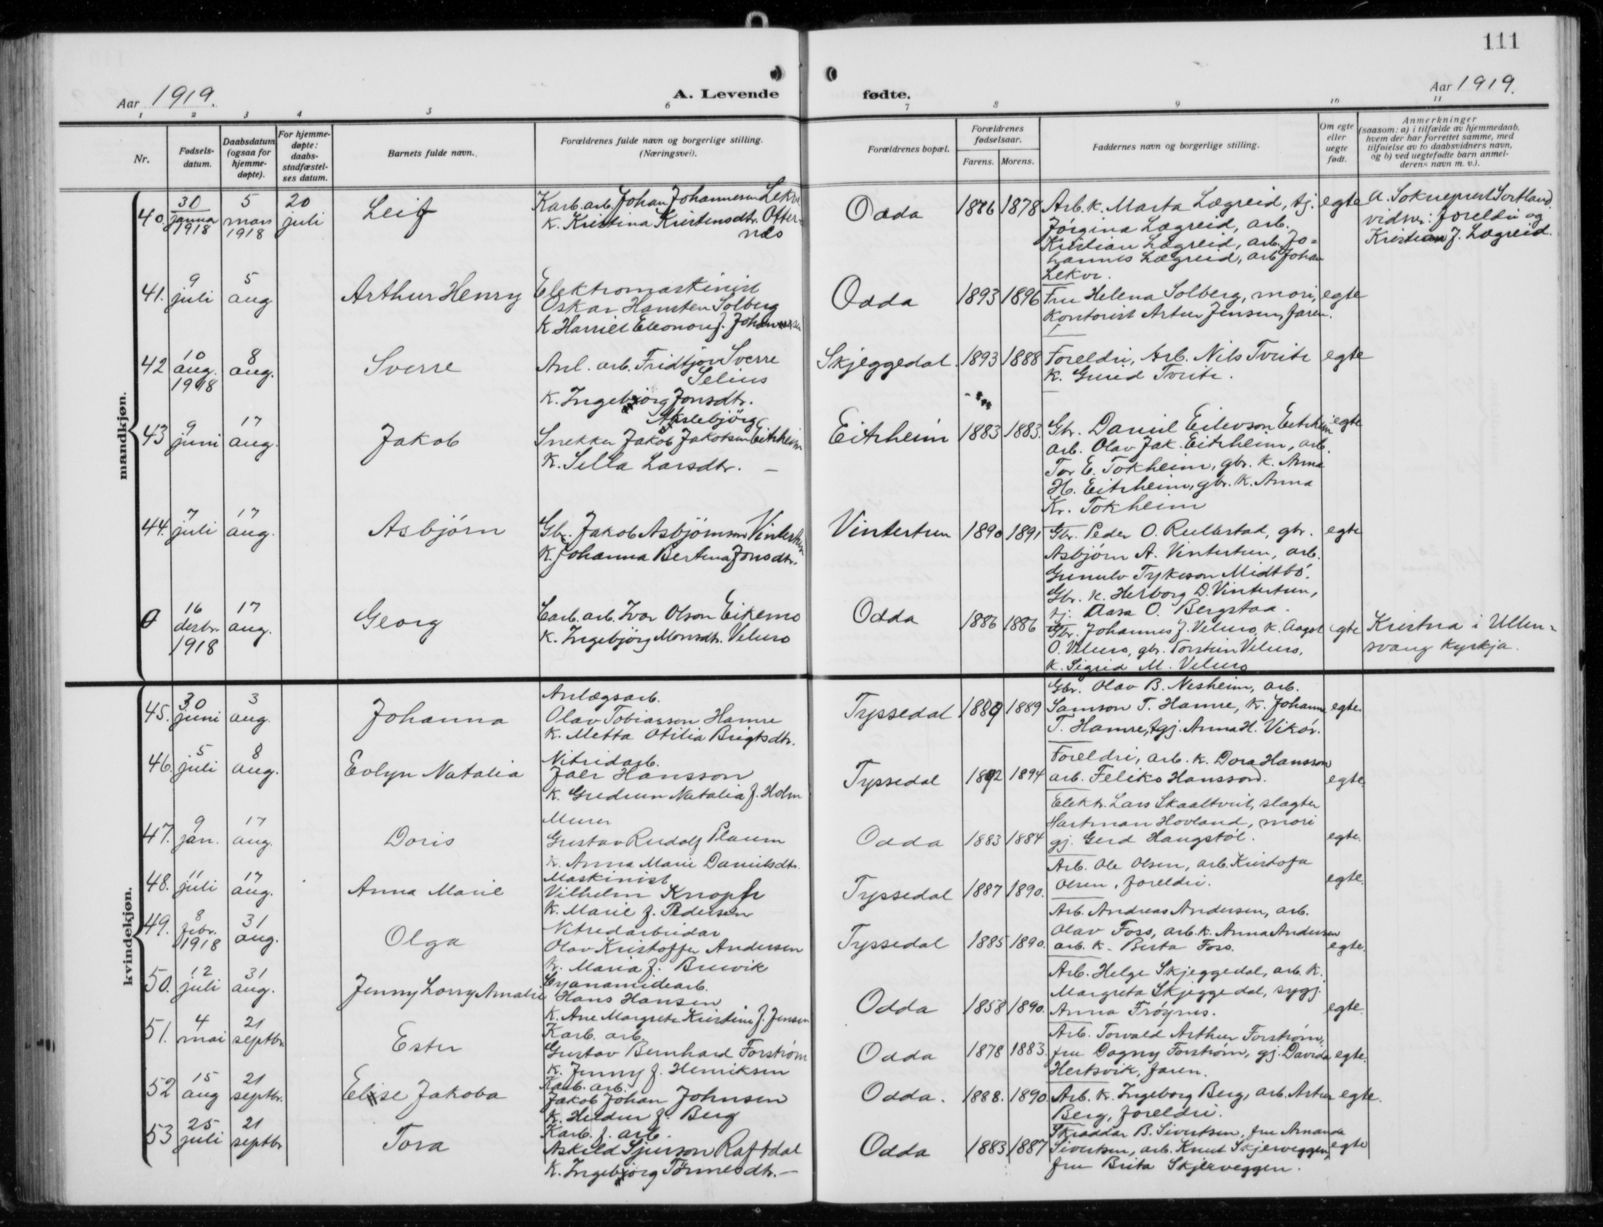 111
Aar 1919.
A. Levende
fødte.
Aar 1919.
1 2 3 4 5 6 7 8 9 10 11
Nr.
Fødsels-
datum.
Daabsdatum
(ogsaa for
hjemme-
døpte).
For hjemme-
døpte:
daabs-
stadfæstel-
ses datum.
Barnets fulde navn.
Forældrenes fulde navn og borgerlige stilling.
(Næringsvei).
Forældrenes bopæl.
Forældrenes
fødselsaar.
Farens. Morens.
Faddernes navn og borgerlige stilling.
Om egte
eller
uegte
født.
Anmerkninger
(saasom: a) i tilfælde av hjemmedaab,
hvem der har forrettet samme, med
tilføielse av to daabsvidners navn,
og b) ved uegtefødte barn anmel-
derens navn m. v.).
mandkjøn.
40.
30
januar
1918
5
mars
1918
20
juli
Leif
Karb. arb. Johan Johannesen Lekve
K. Kristina Kristensdtr. Ofter-
næs
Odda
1876 1878
Arb. k. Marta Lægreid, tj.
Jørgina Lægreid, arb.
Kristian Lægreid, arb. Jo-
hannes Lægreid, arb. Johan
Lekve.
egte
a. Sokneprest Sortland
vidne: foreldri og
Kristian J. Lægreid.
41.
9
juli
5
aug
Arthur Henry
Elektromaskinist
Oskar Hansten Solberg
K Harriet Eleonore f. Johannesen
Odda
1893 1896
Fru Helena Solberg, mori,
Kontorist Artur Jensen, faren.
egte
42
10
aug.
1918
8
aug.
Sverre
Anl. arb. Fridtjov Sverre
Selius
K. Ingebjørg Jonsdtr.
Skjeggedal.
1893 1888
Foreldri, Arb. Nils Tveite
K. Gurid Tveite.
egte
43
9
juni
17
aug.
Jakob
Snekker Jakob Jakobsen Eitrheim
K. Silla Larsdtr. —
Eitrheim
1883 1883.
Gbr. Daniel Eilevson Eitrheim
arb. Olav Jak. Eitrheim, arb.
Tor E. Tokheim, gbr. K. Anna
H. Eitrheim, gbr. K. Anna
Kr. Tokheim
egte
44.
7
juli
17
aug.
Asbjørn
Gbr. Jakob Asbjørnson Vintertun
K. Johanna Bertina Jonsdtr.
Vintertun
1890 1891
Gbr. Peder O. gbr.
Asbjørn A. Vintertun, arb.
Gunnulv Tykeson Midtbö.
Gbr. K. Herborg D. Vintertun,
tj. Aasa O. Bergstaa.
egte
0
16
desbr.
1918
17
aug.
Georg
Carb. arb. Ivar Olson Eikemo
K. Ingebjørg Monsdtr. Velure
Odda
1886 1886
Gbr. Johannes J. Velure, K. Aagot
O. Velure, gbr. Torstein Velure,
K. Sigrid M. Velure
egte
Kristna i Ullen-
svang kyrkja.
kvindekjøn.
45.
30
juni
3
aug.
Johanna
Anlægsarb.
Olav Tobiasson Hamre
K. Metta Otilia Brigtsdtr.
Tyssedal
1889 1889
Gbr. Olav B. Nesheim, arb.
Samson T. Hamre, K. Johanna
T. Hamre, tgj. Anna H. Vikør.
egte.
46.
5
juli
8
aug.
Evlyn Natalia
Nitridarb.
Joel Hansson
K. Gudrun Natalia f. Holm
Tyssedal
1892 1894
Foreldri, arb. K. Dora Hansson
arb. Feliks Hansson.
egte.
47.
9
jan.
17
aug.
Doris
Murer
Gustav Rudolf Plaum
K. Anna Marie Danielsdtr.
Odda
1883 1884
Elektr. Lars Skaaltveit, slagter
Hartman Hovland, mori
gj. Gerd Haugstøl.
egte.
48.
11
juli
17
aug.
Anna Marie
Maskinist
Vilhelm Knopf
K. Marie f. Pedersen
Tyssedal
1887 1890.
Arb. Ole Olsen, arb. Kristofa
Olsen, foreldri.
egte.
49.
8
febr.
1918
31
aug.
Olga
Nitridarbeidar
Olav Kristoffer Andersen
K. Maria f. Breivik
Tyssedal
1885 1890.
Arb. Andreas Andersen, arb.
Olav Foss, arb. K. Anna Andersen
arb. K. Berta Foss.
egte
50.
12
juli
31
aug.
Jenny Lorry Amalie
Cyanamidearb.
Hans Hansen
K. Ane Margrete Kristine f. Jensen
Odda
1858 1890.
Arb. Helge Skjeggedal, arb. K.
Margreta Skjeggedal, sygj.
Anna Frøynes.
egte.
51.
4
mai
21
septbr
Ester
Karb. arb.
Gustav Bernhard Forstrøm
K. Jenny f. Henriksen
Odda
1878 1883.
Arb. Torvald Arthur Forstrøm,
fru Dagny Forstrøm, gj. Davida
Hertsvik, faren.
egte.
52
15
aug
21
septbr.
Elise Jakoba
Karb. arb.
Jakob Johan Johnsen
K. Heldur f. Berg
Odda.
1888. 1890
Arb. K. Ingeborg Berg, arb. Artur
Berg, foreldri.
egte.
53
25
juli
21
septbr
Tora
Karb. f. arb.
Askild Sjurson Raftdal
K. Ingebjørg Tørmodsdtr. —
Odda
1883 1887
Skræddar B. Sivertsen, fru Amanda
Sivertsen, arb. Knut Skjerveggen,
fru Brita Skjerveggen.
egte